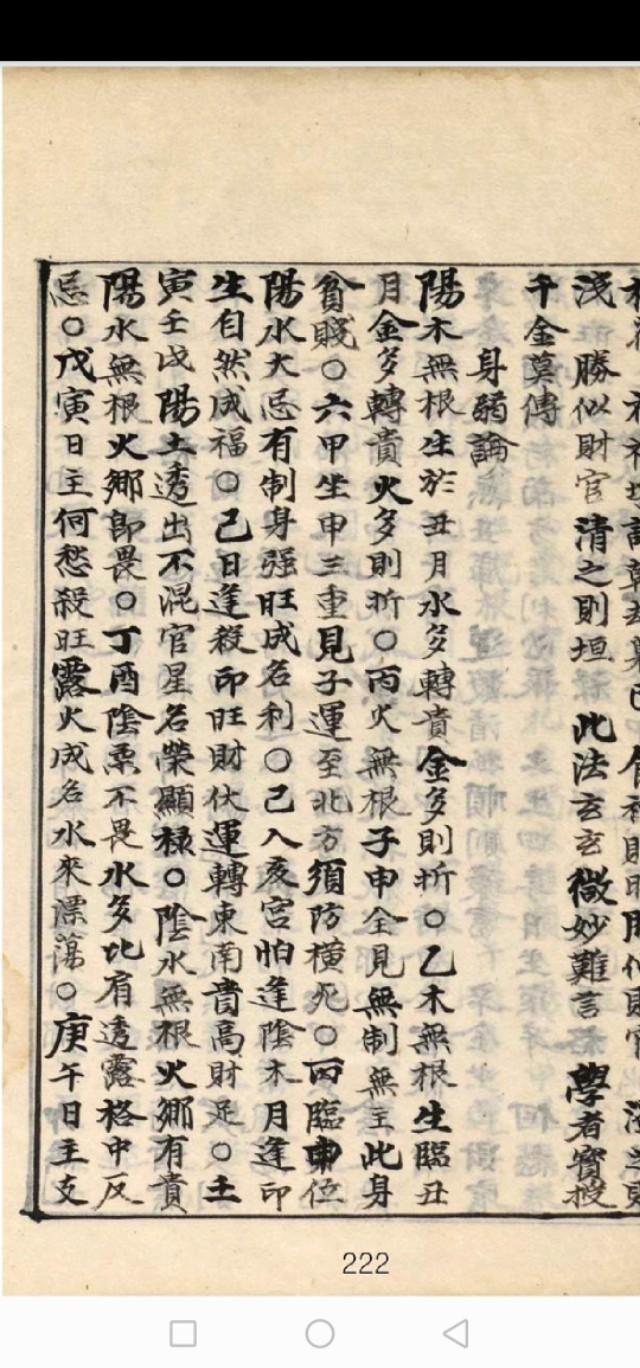 淺勝似財官清之則垣此法玄玄微妙難言學者寶授
千金莫傳
身弱論
陽木無根生於丑月水多轉貴金多則折○乙木無根生臨丑
月金多轉貴火多則折○丙火無根子申全見無制無主此身
貧賤○六甲坐申三重見子運至北方須防橫死○丙臨申位
陽水大忌有制身强旺成名利○己入亥宮怕逢陰木月逢印
生自然成福○己日逢殺印旺財伏運轉東南貴高財足○土
寅壬戌陽土透出不混官星名榮顯祿○陰水無根火鄉有貴
陽水無根火鄉即畏○丁酉陰柔不畏水多比肩透露格中反
忌○戊寅日主何愁殺旺露火成名水來漂蕩○庚午日主支
222